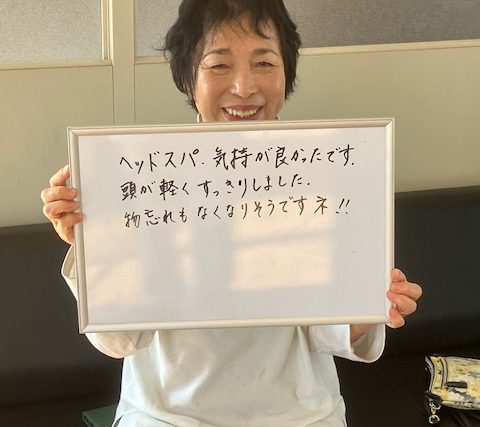 ヘッドスパ. 気持が良かったです.
頭が軽くすっきりしました.
物忘れもなくなりそうですネ!!